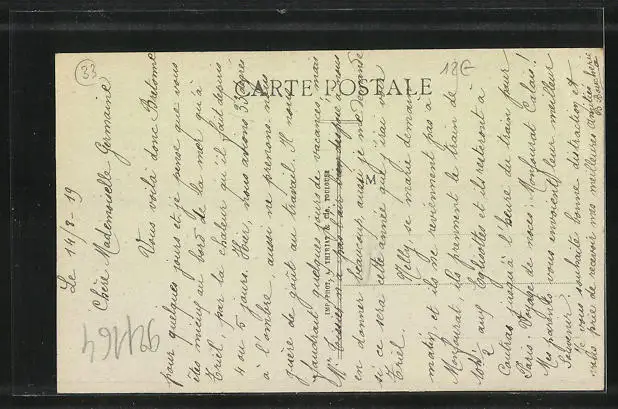 33
CARTE POSTALE
12€
M
IMP. PHOT. THIRIAT & Cie, TOULOUSE
94164
Le 14/8-19
Chère Mademoiselle Germaine
Vous voilà donc Bretonne
pour quelques jours et je pense que vous
êtes mieux au bord de la mer qu'à
Triel, par la chaleur qu'il fait depuis
4 ou 5 jours. Hier, nous avions 35° après
à l'ombre, aussi ne prenons-nous
guère de goût au travail. Il nous
faudrait quelques jours de vacances, mais
Mr n'a pas l'air bien disposé à nous
en donner beaucoup, aussi je me demande
si ce sera cette année que j'irai voir
Triel.
Nelly se marie demain
matin, et ils ne reviennent pas à
Monfourat, ils prennent le train de
aux Eglisottes et ils resteront à
Coutras jusqu'à l'heure du train pour
Paris. Voyage de noces: Monfourat Calais!
Mes parents vous envoient leur meilleur
souvenir.
Je vous souhaite bonne distraction et
vous prie de recevoir mes meilleures amitiés